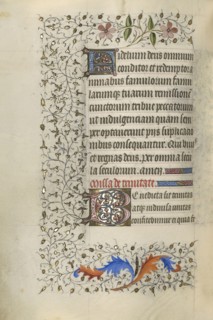 Fidelium deus omnium
conditor et redemptor a
nimabus famulorum famu
larumque tuarum remissionē
cunctorum tribue peccatorum
ut indulgenciam quam semp
er optaverunt piis supplicaciō
nibus consequantur. Qui vivis
et regnas deus. Per omnia secu
la seculorum. Amen.
Missa de trinitate.
Benedicta sit trinitas
atque indivisa unitas
confitebimur ei quia fe